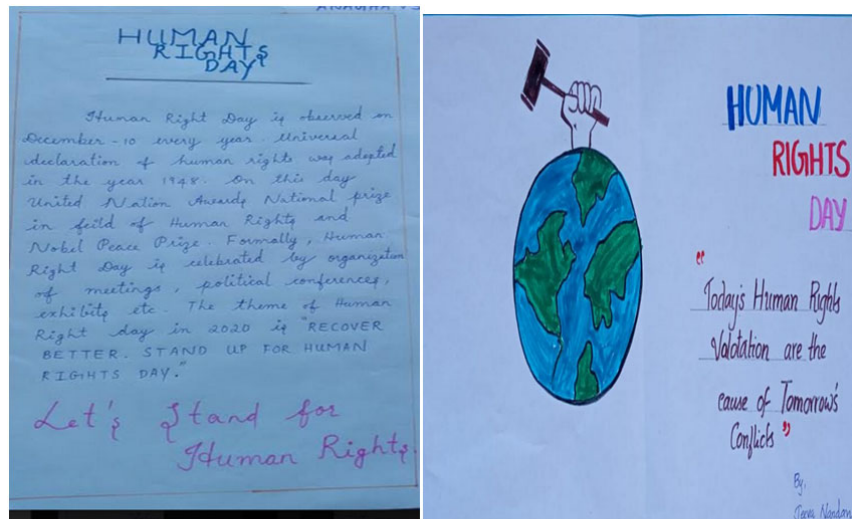 HUMAN
RIGHTS
DAY
Human Right Day is observed on
December-10 every year. Universal
declaration of human rights was adopted
in the year 1948. On this day
United Nation Awards National prize
in feild of Human Rights and
Nobel Peace Prize. Formally, Human
Right Day is celebrated by organization
of meetings, political conferences,
exhibits etc. The theme of Human
Right day in 2020 is "RECOVER
BETTER. STAND UP FOR HUMAN
RIGHTS DAY."
Let's Stand for
Human Rights.
HUMAN
RIGHTS
DAY
"
Today's Human Rights
Valotation are the
cause of Tomorrow's
Conflicts "
By,
Nandan